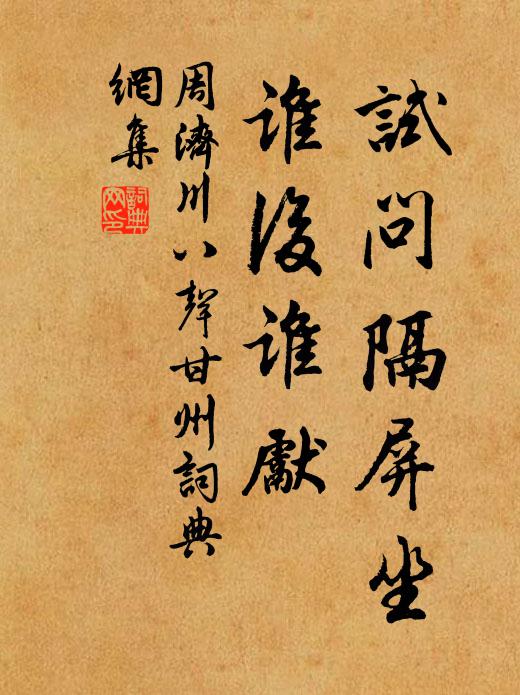 試問隔屏坐
誰後誰獻
周濟川八聲甘州詞典
網集
詞典
网印